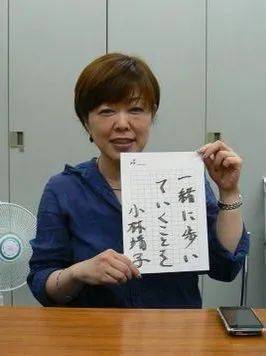 一緒に歩い
ていくことを
小林靖子